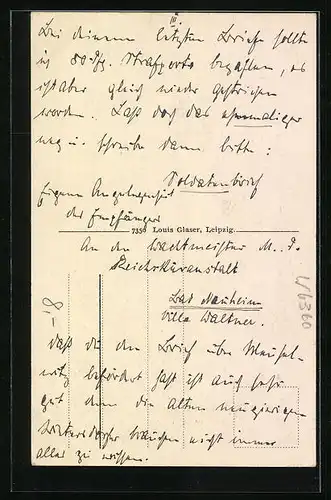 III.
Bei deinem letzten Brief sollte
ich 80 Pfg. Strafporto bezahlen, es
ist aber gleich wieder gestrichen
worden. Laß doch das ehemaliger
weg u. schreibe dann bitte:
Soldatenbrief
Eigene Angelegenheit
des Empfängers
7350 Louis Glaser, Leipzig.
An den Wachtmeister M. F.
Reichskuranstalt
Bad Nauheim
Villa Waltner.
daß du den Brief über Meusel-
witz befördert hast ist auch sehr
gut denn die alten neugierigen
brauchen nicht immer
alles zu wissen.
8,-